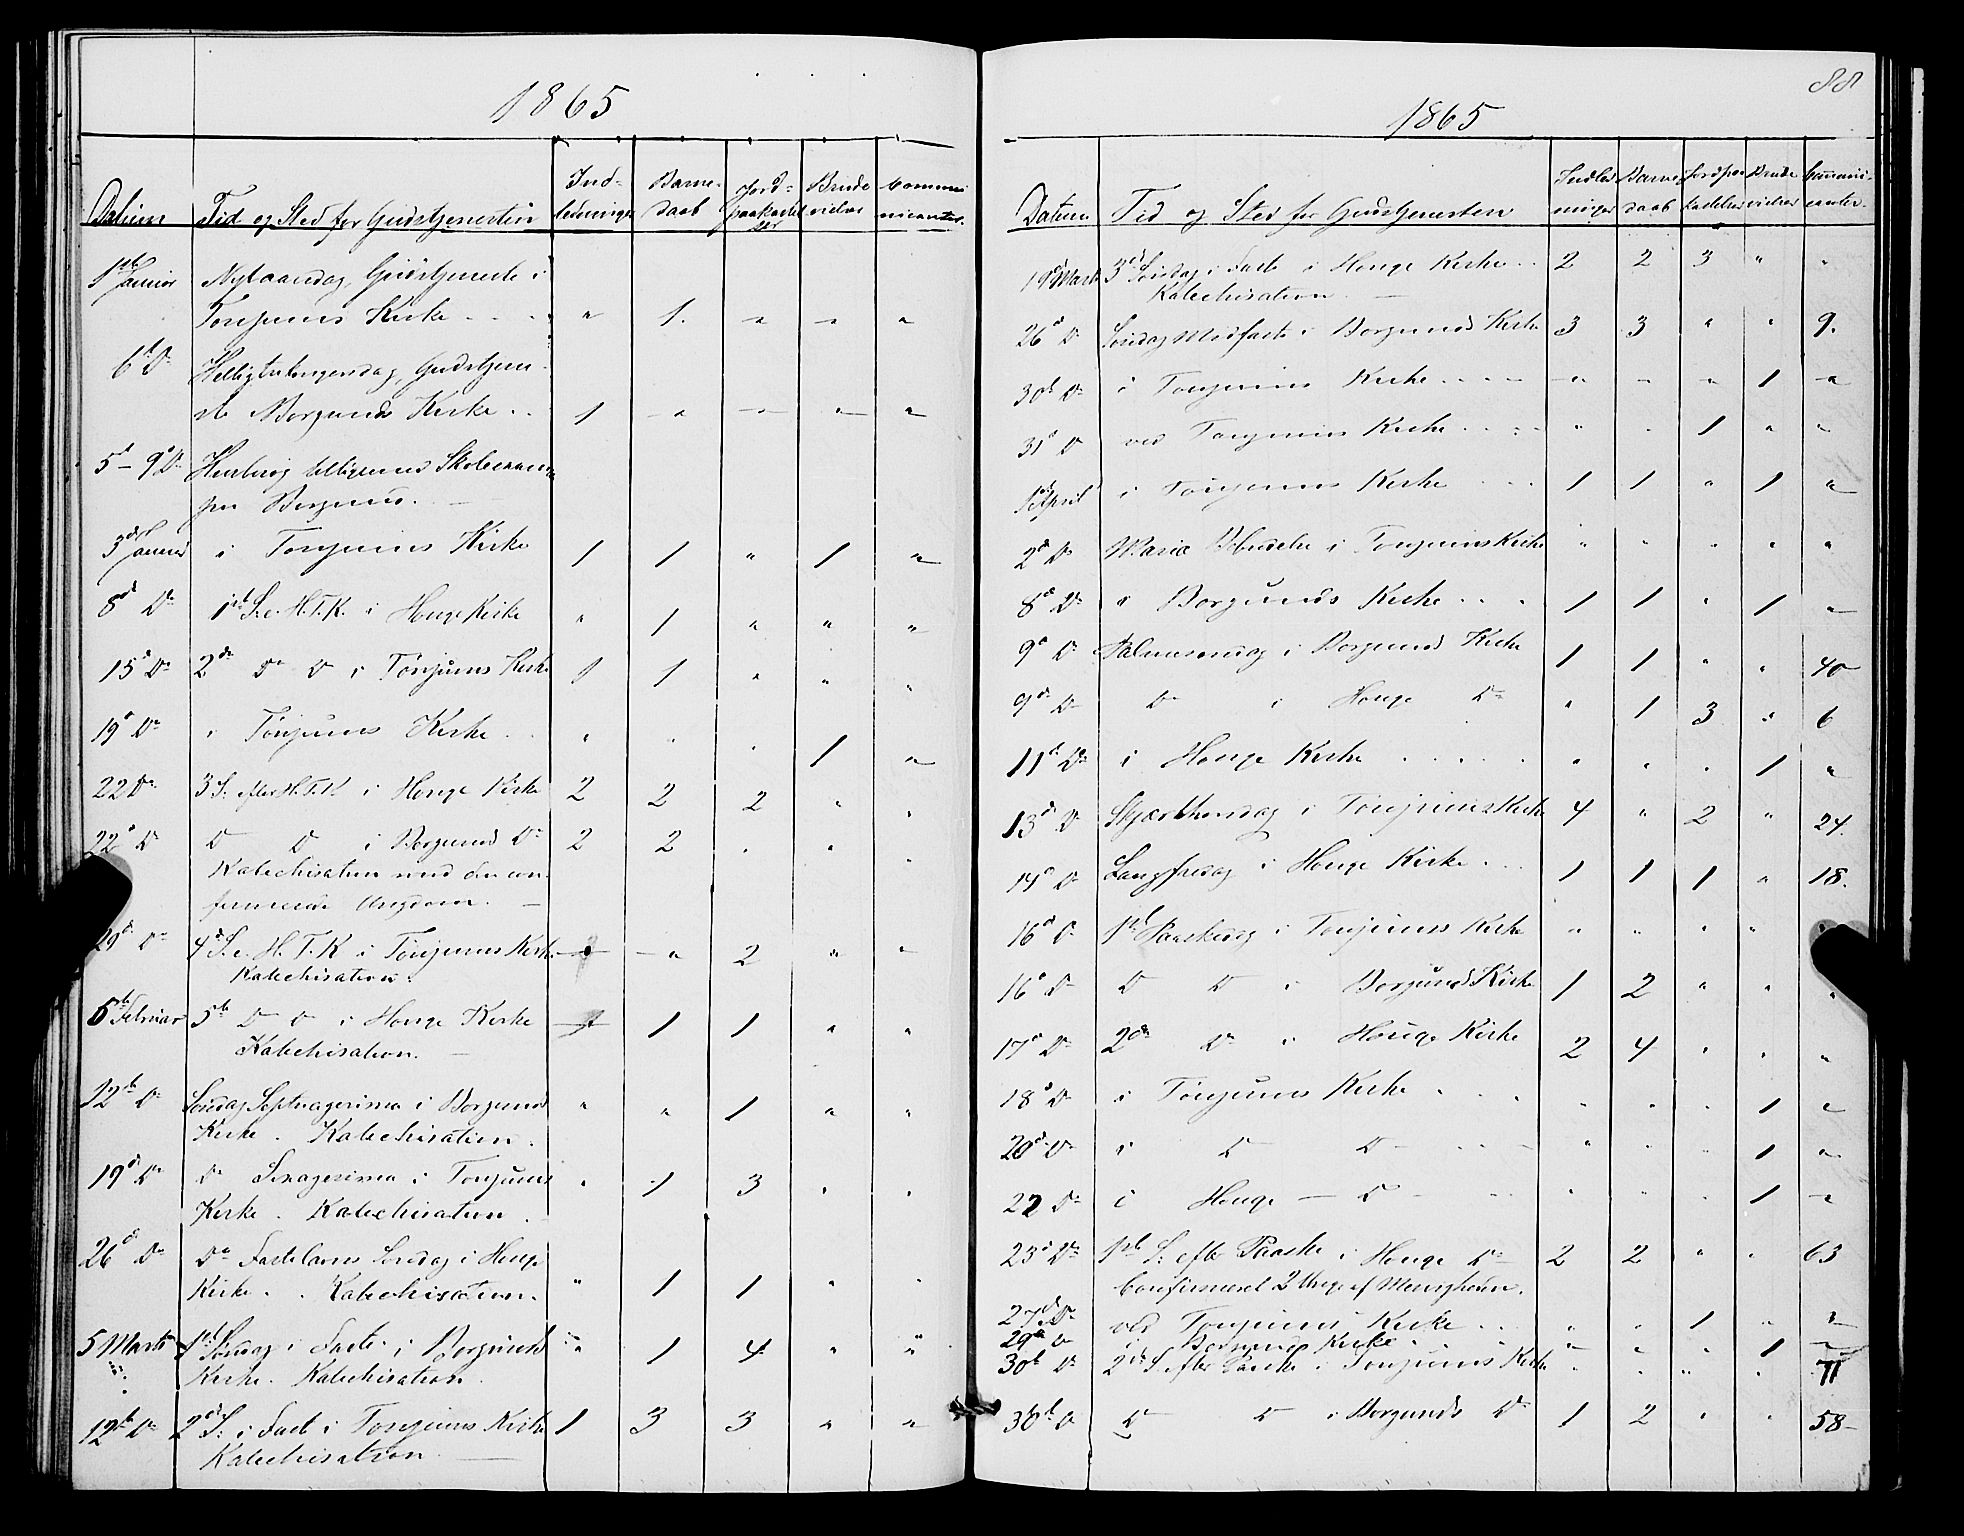 1865
Datum Tid og Sted for Gudstjenesten Ind- ledninger Barne- daab Jord- paakastel ser Brude vielser Commu- nicanter.
1st Januar Nytaarsdag, Gudstjeneste i
Tønjums Kirke . . . " 1. " " "
6t Do Helligtrekongersdag, Gudstjene-
ste Borgunds Kirke . . 1 " " " "
5t – 9d Do
paa Borgund. —
3d Januar i Tønjums Kirke 1 1 " 1 "
8d Do 1st S. e. H.T.K. i Houge Kirke " 1 " " "
15d Do 2den Do Do i Tønjums Kirke 1 1 " " "
19d Do i Tønjums Kirke . " " " 1 "
22 Do 3 S. efter H.T.K. i Houge Kirke 2 2 2 " "
22d Do Do Do i Borgund Do 2 2 " " "
Katechisation med den con-
firmerede Ungdom. —
29d Do 4d S. e. H. T. K i Tønjums Kirke " 2 " "
Katechisation.
5te Februar 5te Do Do i Houge Kirke 1 1 " "
Katechisation. —
12te Do Søndag Septuagesima i Borgund " " 1 " "
Kirke . Katechisation .
19d Do Do Sexagesima i Tonjums " 1 3 " "
Kirke . Katechisation .
26d Do Do Fastelavns Søndag i Houge
Kirke . . Katechisation. " 1 1 " "
5 Marts 1st Søndag i Faste i Borgund " 1 4 " "
Kirke. Katechisation.
12te Do 2den S: i Fast i Tonjums Kirke 1 3 3 " "
Katechisation —
88
1865
Datum Tid og Sted for Gudstjenesten Indled ninger Barne daab Jordpaa kastelser Brude vielser Communi- canter.
19d Marts 3d Søndag i Faste i Houge Kirke . . 2 2 3 " "
Katechisation —
26d Do Søndag Midfaste i Borgund Kirke 3 3 " " 9.
30d Do i Tonjums Kirke . . . . " " " 1 "
31d Do ved Tonjums Kirke . . . . " " 1 " "
1st April i Tonjums Kirke . . . 1 1 " 1 "
2d Do Mariæ Bebudelse i Tonjums Kirke " " " " "
8d Do i Borgunds Kirke . . . 1 1 " 1 "
9d Do Palmesøndag i Borgund Kirke 1 1 " " 40
9d Do Do i Houge Do " 1 3 " 6
11te Do i Houge Kirke . . . . . " " " 1 "
13d Do Skjærthorsdag i Tonjums Kirke 4 " 2 " 24.
14d Do Langfredag i Houge Kirke . . . 1 1 1 " 18.
16d Do 1ste Paaskedag i Tonjums Kirke " " " " "
16d Do Do Do i Borgund Kirke 1 2 " " "
17d Do 2den Do i Houge Kirke 2 4 " " "
18d Do i Tønjums Kirke . . . " " " 1 "
20d Do i Do Do - . . . " " " 1 "
22 Do i Houge — Do - . . " " " 1 "
23d Do 1ste S: efter Paaske i Houge Do 2 2 " " 63
Confirmeret 2 Unge af Menigheden.
27d Do ved Tonjums Kirke . . " " 1 " "
29de Do i Borgund Kirke . " " " 1 "
30d Do 2de S. efter Paaske i Tonjums Kirke " " " " 71
30te Do Do Do i Borgunds Do 1 2 " " 58